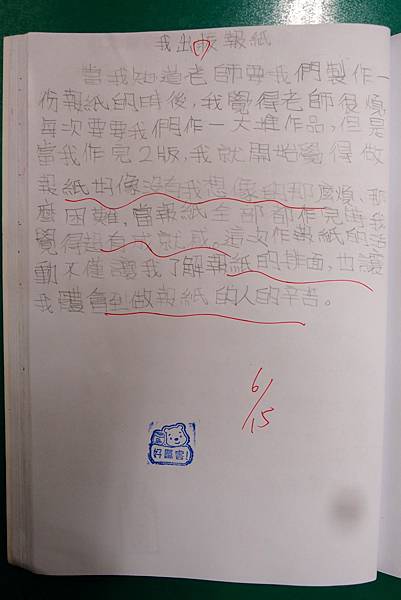 我出版報紙
當我知道老師要我們製作一
份報紙的時後，我覺得老師很煩
每次要要我們作一大堆作品，但是
當我作完2版，我就開始覺得做
報紙好像沒有我想像的那麼煩、那
麼困難，當報紙全部都作完時我
覺得超有成就感。這次作報紙的活
動不僅讓我了解報紙的排面，也讓
我體會到做報紙的人的辛苦。
6/15
好厲害